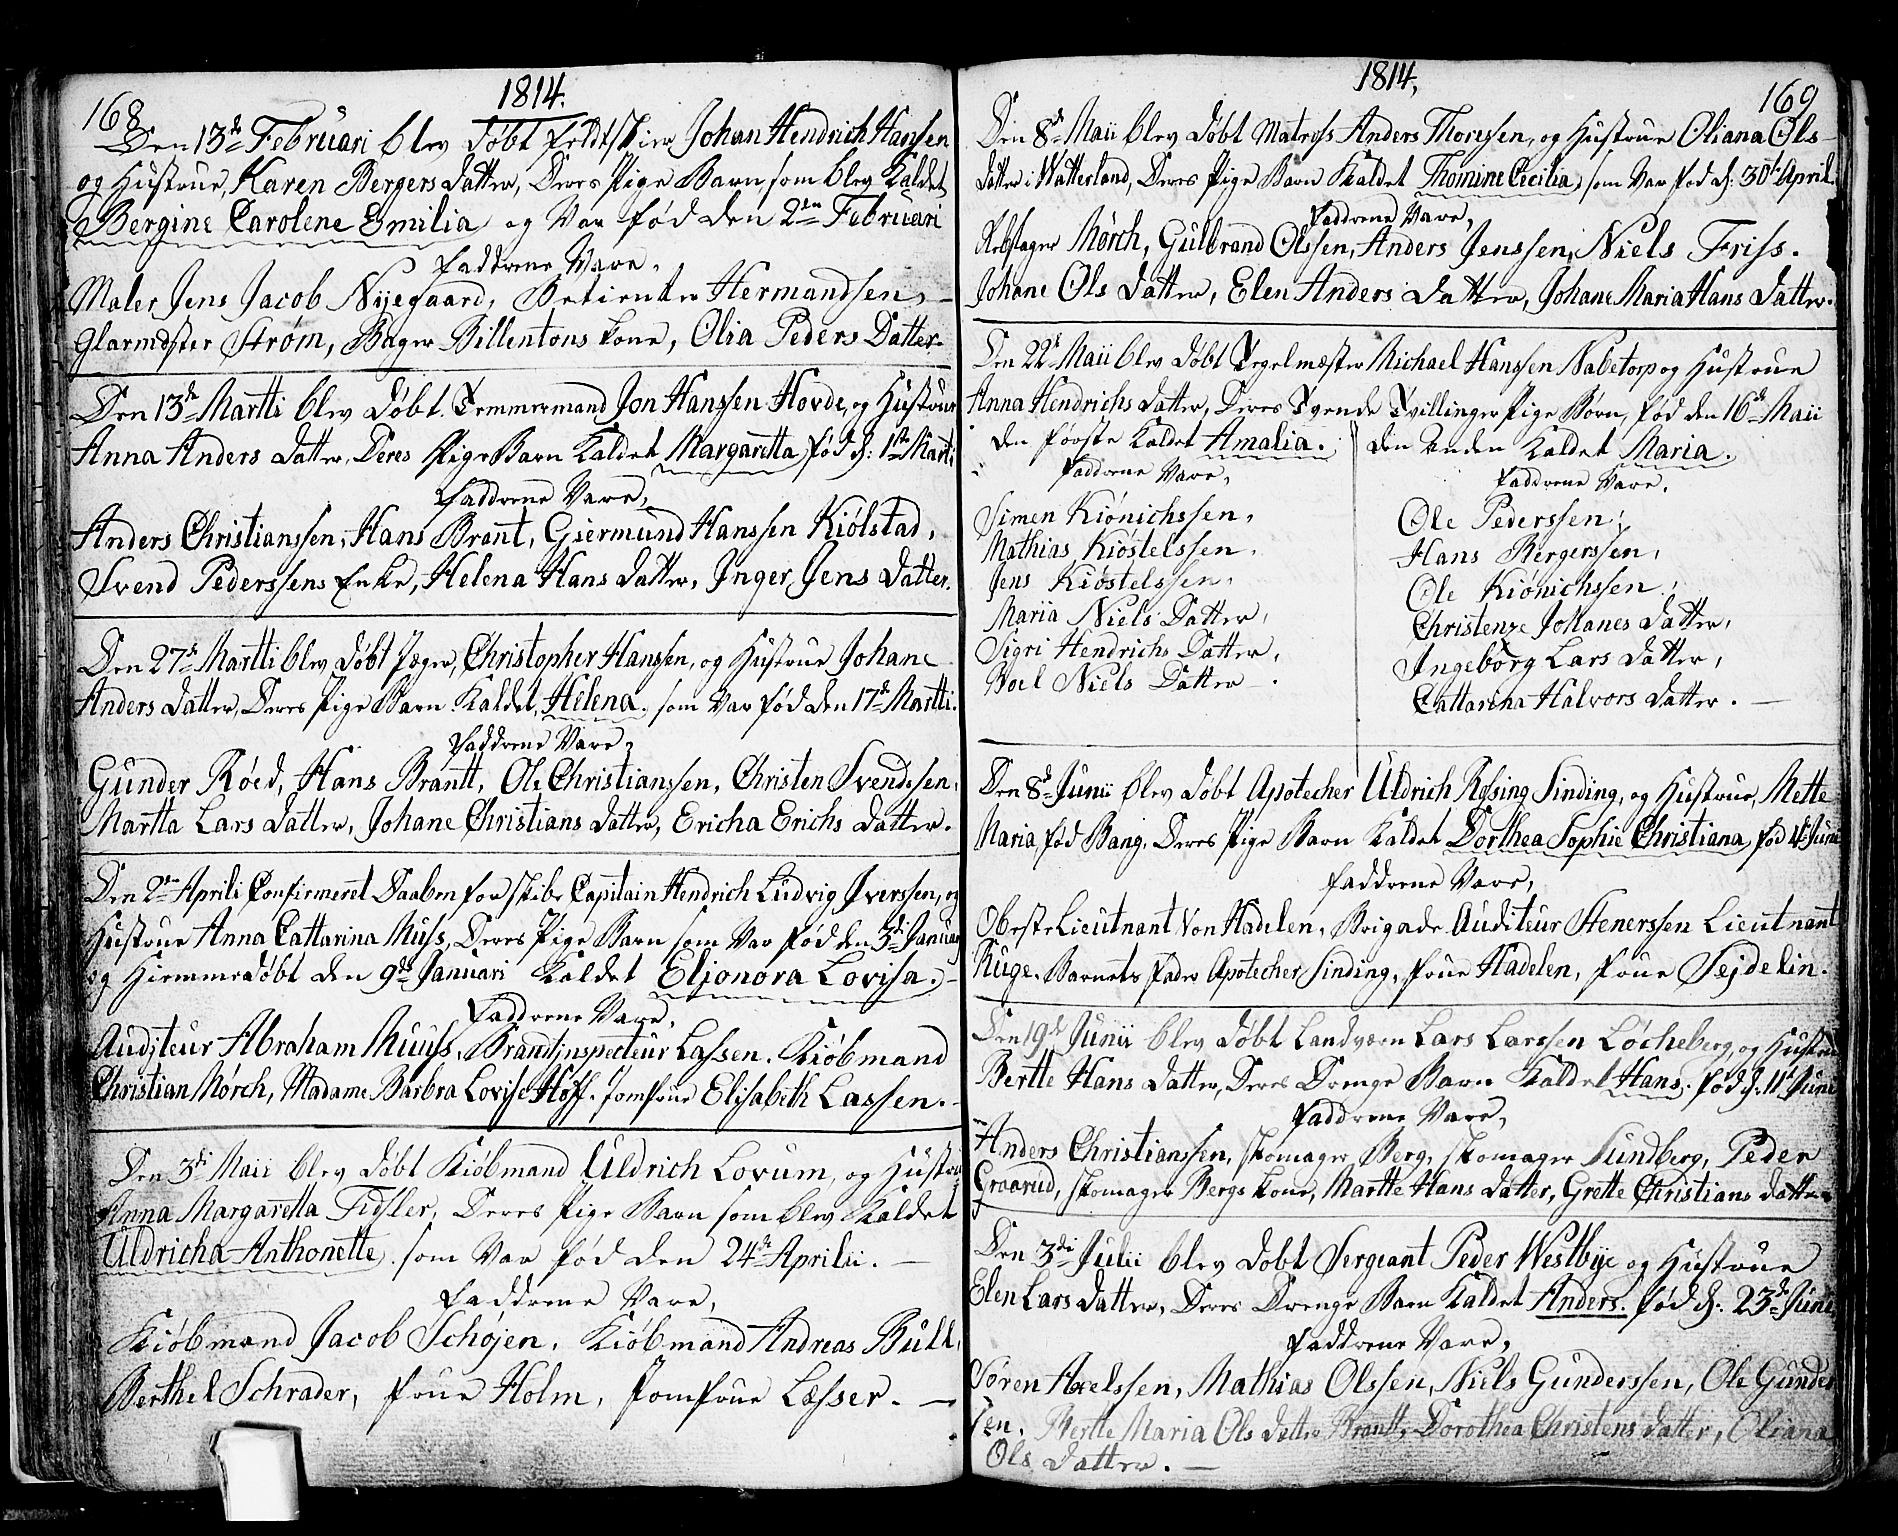 168
1814.
Den 13de Februari blev Døbt Feldtskier Johan Hendrich Hanssen
og Hustrue, Karen Bergers Datter, Deres Pige Barn som blev Kaldet
Bergine Carolene Emilia og Var fød den 2den Februari
Faddrene Vare,
Maler Jens Jacob Nyegaard, Betienter Hermandsen,
Glarmæster Strøm, Bager Billentons kone, Olia Peders Datter.
Den 13de Martti blev Døbt Temmermand Jon Hanssen Hovde, og Hustrue
Anna Anders Datter, Deres Pige Barn Kaldet Margaretta, fød d: 1ste Marti
Faddrene Vare,
Anders Christianssen, Hans Brant, Giermund Hanssen Kiólstad,
Svend Pederssens Enke, Helena Hans Datter, Inger Jens Datter.
Den 27de Martti blev Døbt Jæger, Christopher Hanssen, og Hustrue Johane
Anders Datter, Deres Pige Barn Kaldet, Helena. som Var fød den 17de Martti.
Faddrene Vare,
Gunder Róed, Hans Brantt, Ole Christianssen, Christen Svendsen,
Martta Lars Datter, Johane Christians Datter, Ericha Erichs Datter.
Den 2den Aprili Confirmeret Daaben for skibs Capitain Hendrich Ludvig Iverssen, og
Hustrue Anna Cattarina Muss, Deres Pige Barn som Var fød den 3de Januar
og Hiemmedøbt den 9de Januari Kaldet Elionora Lovisa.
Faddrene Vare,
Auditeur Abraham Muuss, Brandinspecteur Lassen. Kiøbmand
Christian Mórch, Madame Barbra Lovise Hoff. Jomfrue Elisabeth Lassen.
Den 3die Maii blev Døbt Kiøbmand Uldrich Lorum, og Hustrue
Anna Margaretta Fidsler, Deres Pige Barn som blev Kaldet
Uldricha Anthonette. som Var fød den 24de Aprilii.
Faddrene Vare,
Kiøbmand Jacob Schøjen. Kiøbmand Andreas Bull,
Berthel Schrader, frue Holm, Jomfrue Læsser.
1814,
169
Den 8de Maii blev Døbt Matross Anders Thoressen, og Hustrue Oliana Ols-
Datter i Watterland, Deres Pige Barn Kaldet Thomine Cecilia, som Var fød d: 30te April
Faddrene Vare,
Rebslager Mørch, Gulbrand Olssen, Anders Jenssen, Niels Friss.
Johane Ols Datter, Elen Anders Datter, Johane Maria Hans Datter.
Den 22de Maii blev Døbt Tegelmæster Michael Hanssen Nabetorp og Hustrue
Anna Hendrichs Datter, Deres Tvende Tvillinger Pige Børn, fød den 16de Maii
den Første Kaldet Amalia. den Anden Kaldet Maria.
Faddrene Vare, Faddrene Vare.
Simen Kiónichssen, Ole Pederssen,
Mathias Kióstelssen. Hans Bergerssen,
Jens Kióstelssen, Ole Kiónichssen.
Maria Niels Datter, Christenze Johanes Datter,
Sigri Hendrichs Datter, Ingeborg Lars Datter,
Boel Niels Datter. Cattarina Halvors Datter.
Den 8de Junii blev Døbt Apotecher Uldrich Rossing Sinding, og Hustrue, Mette
Maria, fød Bang, Deres Pige Barn Kaldet Dorthea Sophie Christiana, fød 4de Junii
Faddrene Vare,
Oberste Lieutnant Von Hadelen, Brigade Auditeur Stenerssen Lieutnant
Ruge. Barnets Fader Apotecher Sinding, frue Hadelen, frue Sejdelin.
Den 19de Junii blev Døbt Landværn Lars Larssen Lócheberg, og Hustrue
Bertte Hans Datter, Deres Drenge Barn Kaldet Hans. fød d: 11te Junii
Faddrene Vare,
Anders Christianssen, Skomager Berg, Skomager Sundberg, Peder
Graarud, Skomager Bergs kone, Martte Hans Datter, Grette Christians Datter
Den 3die Julii blev Døbt Sergeant Peder Westbye og Hustrue
Elen Lars Datter, Deres Drenge Barn Kaldet Anders. fød d: 23de Junii
Faddrene Vare,
Sóren Axelssen, Mathias Olssen, Niels Gunderssen, Ole Gunder
sen. Bertte Maria Ols Datter Brantt, Dorothea Christens Datter, Oliana
Ols Datter.